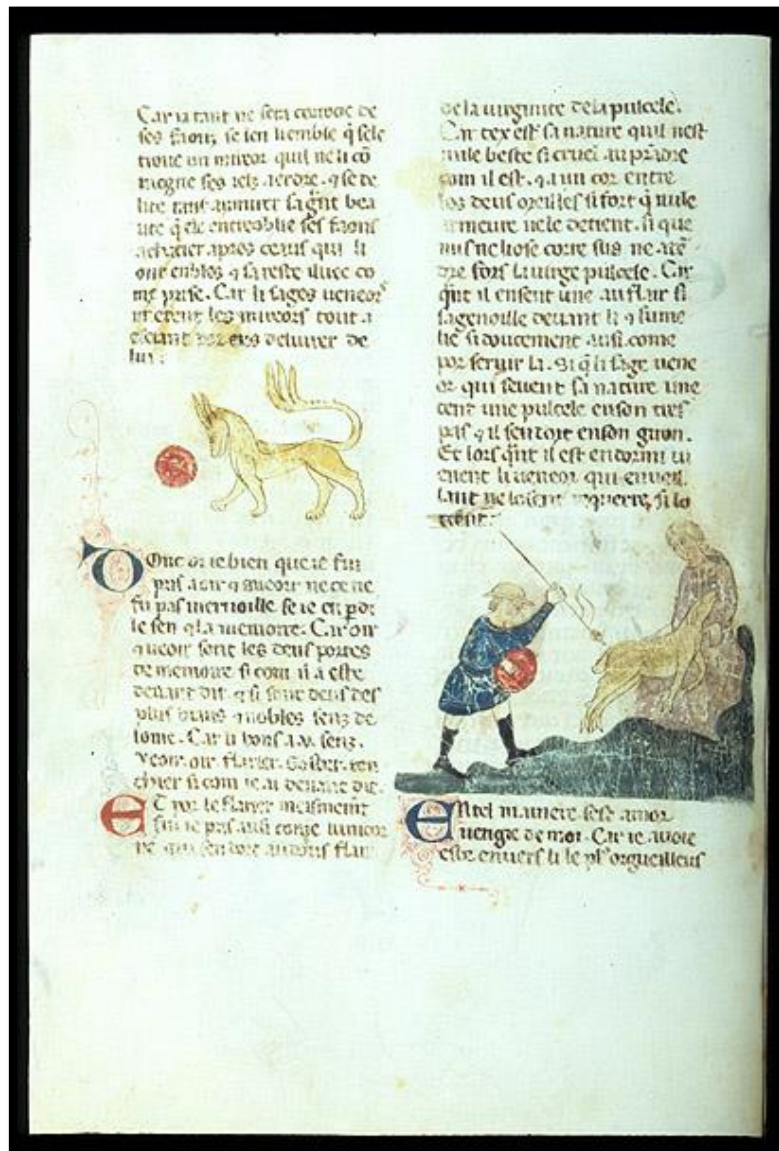 Car ia tant ne sera courocie de
ses faons, se len li emble q̄ sele
troue un mireor quil ne li cō
uiegne ses ielz aerdre. ⁊ se de
lite tant a
ute q̄ ele entroblie ses faons
a chacier apres ceaus qui li
ont emblez ⁊ sareste iluec co
me prise. Car li sages ueneor
les mireors tout a
escient por eus deliurer de
lui.
Donc di ie bien que ie fui
pris a oir ⁊ a ueoir ne ce ne
fu pas merueille se ie en ꝑdi
le sen ⁊ la memoire. Car oir
⁊ ueoir sont les deus portes
de memoire si com il a este
deuant dit. ⁊ si sont deus des
plus ⁊ nobles senz de
lome. Car li hons a .v. senz.
Veoir. oir. flairier. Goster. ⁊ tou
chier si com ie ai deuant dit.
Et por le flairer meismement
fui ie pris ausi come lunicor
ne qui sendort au douz flair
de la uirginite de la pulcele.
Car tex est sa nature quil nest
nule beste si cruel a
com il est. ⁊ a un cor entre
les deus oreilles si fort q̄ nule
armeure ne le detient. si que
nus ne li ose corre sus ne atē
dre fors la uirge pulcele. Car
q̄nt il en sent une au flair si
sagenoille deuant li ⁊ sume
lie si doucement ausi come
por seruir la. Si q̄ li sage uene
or qui seuent sa nature me
tent une pulcele en son tres
pas ⁊ il sendort en son giron.
Et lors q̄nt il est endormi
uienent li ueneor qui en ueil
lant ne losent requerre, si lo
cient.
En tel maniere sest amor
uengie de moi. Car ie auoie
este enuers li le pl᷒ orgueilleus